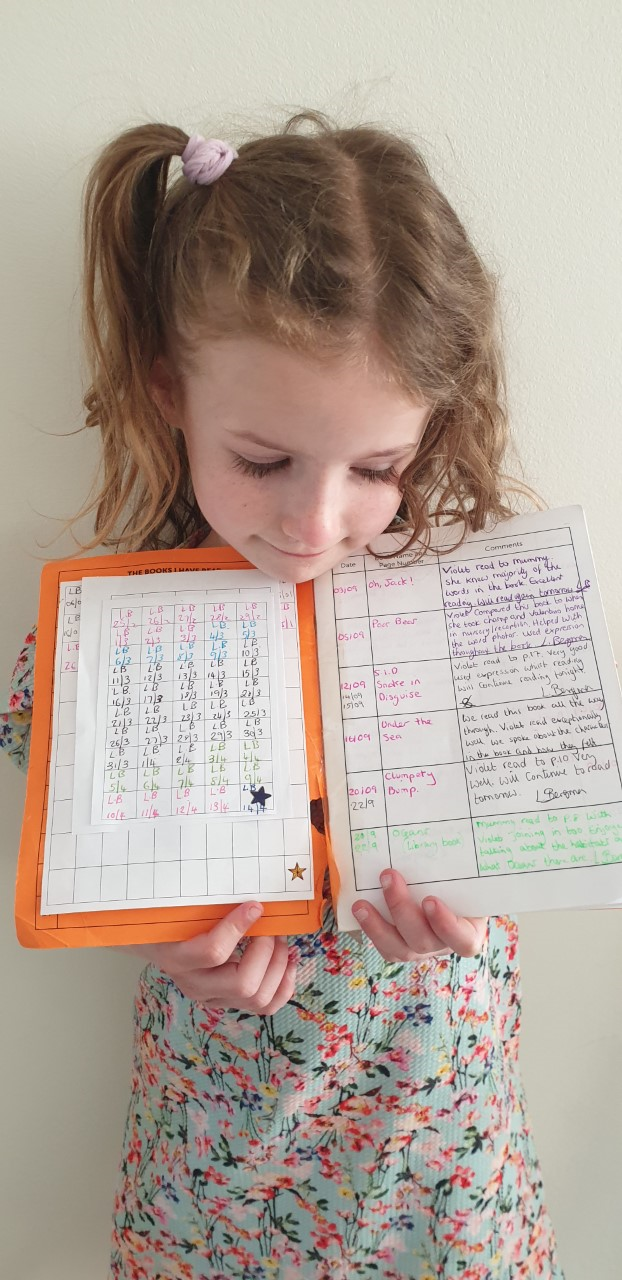 THE BOOKS I HAVE READ
LB LB LB LB LB
25/2 26/2 27/2 28/2 29/2
LB LB LB LB LB
1/3 2/3 3/3 4/3 5/3
LB LB LB LB LB
6/3 7/3 8/3 9/3 10/3
LB LB LB LB LB
11/3 12/3 13/3 14/3 15/3
LB LB LB LB LB
16/3 17/3 18/3 19/3 20/3
LB LB LB LB LB
21/3 22/3 23/3 24/3 25/3
LB LB LB LB LB
26/3 27/3 28/3 29/3 30/3
LB LB LB LB LB
31/3 1/4 2/4 3/4 4/4
LB LB LB LB LB
5/4 6/4 7/4 8/4 9/4
LB LB LB LB LB
10/4 11/4 12/4 13/4 14/4
Date
Page Number
Comments
03/09
Oh, Jack!
Violet read to mummy.
She knew majority of the
words in the book. Excellent
reading. Will read again tomorrow.
05/09
Poor Bear
Violet compared this book to when
she took champ and Valentina home
in nursery/reception. Helped with
the word photor. Used expression
throughout the book. L Bergman
12/09
14/09
15/09
S.I.D
Snake in
Disguise
Violet read to p.17. Very good
used expression whilst reading
will continue reading tonight.
L Bergman
16/09
Under the
Sea
We read this book all the way
through. Violet read exceptionally
well we spoke about the characters
in the book and how they felt
20/09
22/9
Clumpaty
Bump.
Violet read to p.10 Very
well. Will continue to read
tomorrow. L Bergman
Oceans
Library book
Mummy read to p.8 with
Violet joining in too
talking about
what Oceans there are